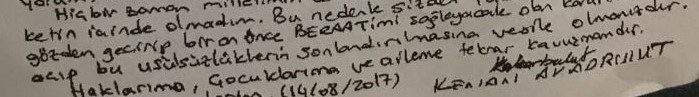 Hiçbir zaman
ketin içinde olmadım. Bu nedenle sizden
gözden geçirip bir an önce BERAATİMİ sağlayacak olan
açıp bu usulsüzlüklerin sonlandırılmasına vesile olmanızdır.
Haklarıma, Çocuklarıma ve aileme tekrar kavuşmamdır.
(14/08/2017)